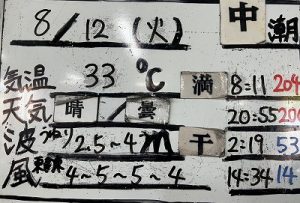 8/12(火) 中潮
気温 33℃ 満 8:11 204
天気 晴/曇 20:55 200
波 うねり 2.5~4m 干 2:19 53
風 4~5~5~4 14:34 14